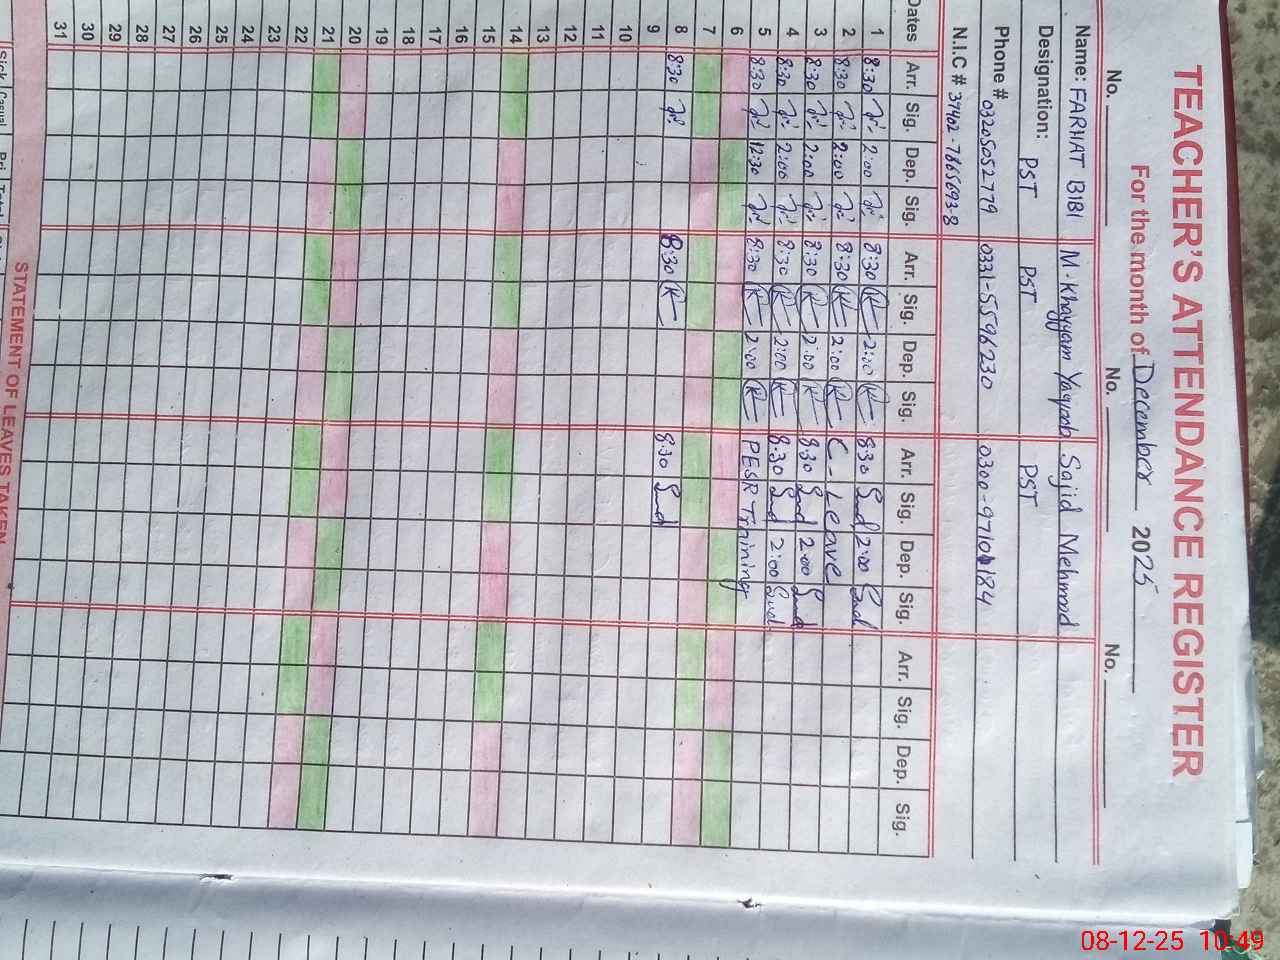 TEACHER'S ATTENDANCE REGISTER
For the month of December 2025
No. No. No.
Name: FARHAT BIBI M. Khayyam Yaqoob Sajid Mehmood
Designation: PST PST PST
Phone # 03205052779 0331-5596230 0300-9710184
N.I.C # 37402-7665693-8
Dates Arr. Sig. Dep. Sig. Arr. Sig. Dep. Sig. Arr. Sig. Dep. Sig. Arr. Sig. Dep. Sig.
1 8:30 2:00 8:30 2:00 8:30 2:00
2 8:30 2:00 8:30 2:00 C-Leave
3 8:30 2:00 8:30 2:00 8:30 2:00
4 8:30 2:00 8:30 2:00 8:30 2:00
5 8:30 12:30 8:30 2:00 PESR Training
6
7
8 8:30 8:30 8:30
9
10
11
12
13
14
15
16
17
18
19
20
21
22
23
24
25
26
27
28
29
30
31
STATEMENT OF LEAVES TAKEN
Sick Casual Pri. Total
08-12-25 10:49